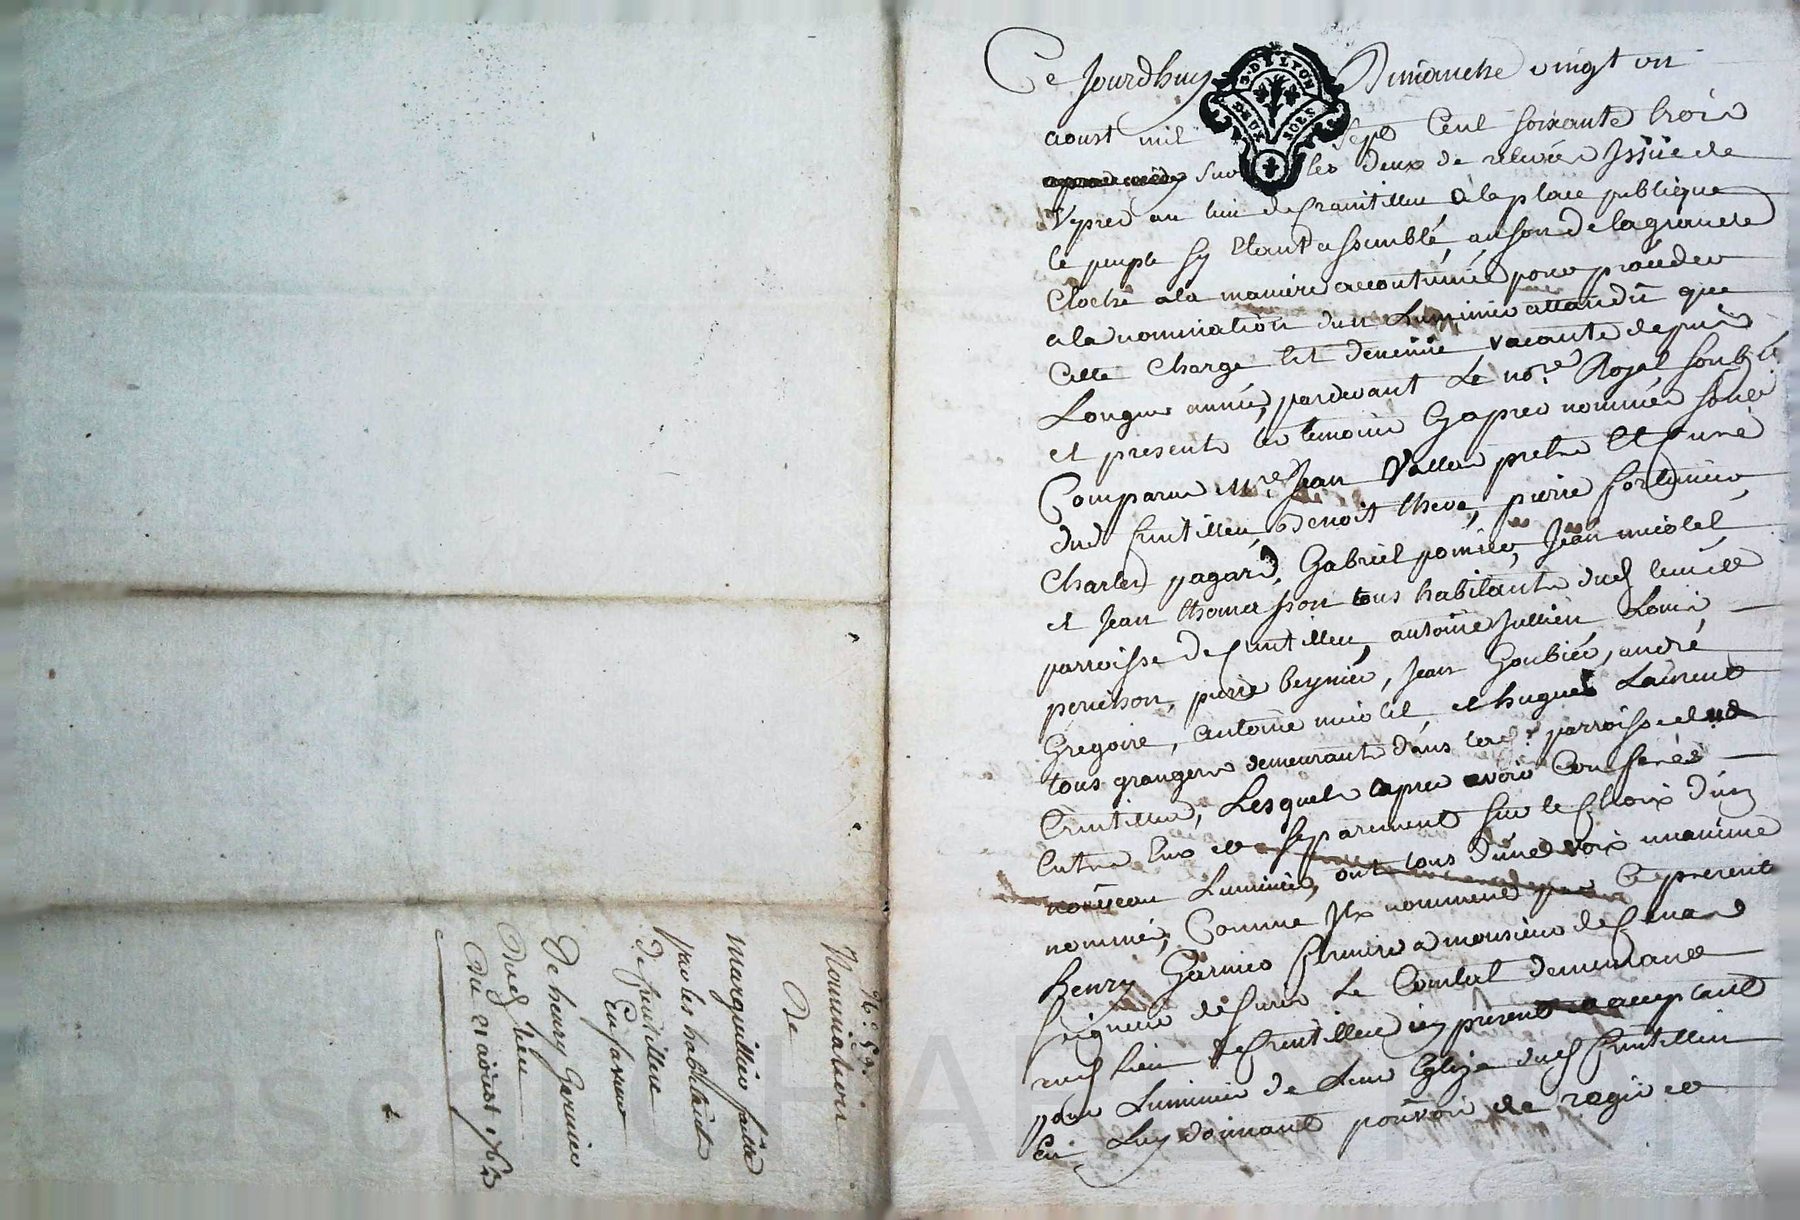 Ce Jourdhuy Dimanche vingt un
aoust mil sept Cent soixante trois
sur les deux de relevée Issüe de
Vepres au lieu de Craintilleu a la place publique
le peuple sy Etant assemblé, au son de la grande
Cloche a la maniere accoutumée pour proceder
a la nomination dun Luminier attandû que
Cette Charge Est devenüe vacante depuis
Longues années, pardevant Le nore Royal soubzé
et presents les temoins Cy apres nommés sont
Comparus Mre Jean pretre Et Curé
dud Crintilleu, Benoit theve, pierre
Charles pagard, Gabriel pomier, Jean micolet,
et Jean thomasson tous habitants dud lieu et
parroisse de Crintilleu, antoine Jullien Louis
perichon, pierre beynier, Jean Goubier, andré
Gregoire, antoine micolet, et hugues Laurent
tous grangers demeurants dans lad. parroisse de
Crintilleu, Lesquels apres avoir Conferés
Entre Eux et separement sur le Choix d'un
nouveau Luminier, ont tous d'une voix unanime
nommé, Comme Ils nomment par Ces presents
henry Garnier fermier a monsieur de
seigneur de Sury Le Comtal demeurant
aud lieu de Crentilleu icy present et acceptant
pour Luminier de Leur Eglize dud Crintilleu
En Luy donnant pouvoir de regir et
No. 59.
Nommination
De
marguillier faitte
par les habitants
de Crintilleu
En faveur
De henry Garnier
Dud lieu
Du 21 aoust 1763
S. DE LYON
DEUX SOLS
Pascal CHAMBON